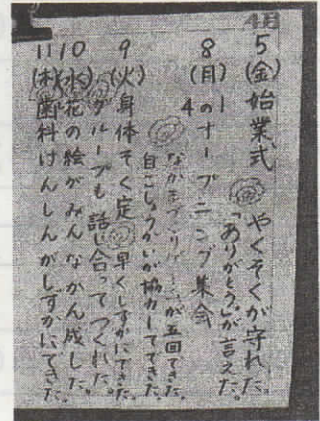 4月
5(金)始業式 やくそくが守れた。
「ありがとう。」が言えた。
8(月) 4の1オープニング集会
なかまづくりゲームが五回できた。
自こしょうかいが協力してできた。
9(火)身体そく定 早くしずかにできた。
グループも話し合ってつくれた。
10(水)花の絵がみんなかん成した。
11(木)歯科けんしんがしずかにできた。